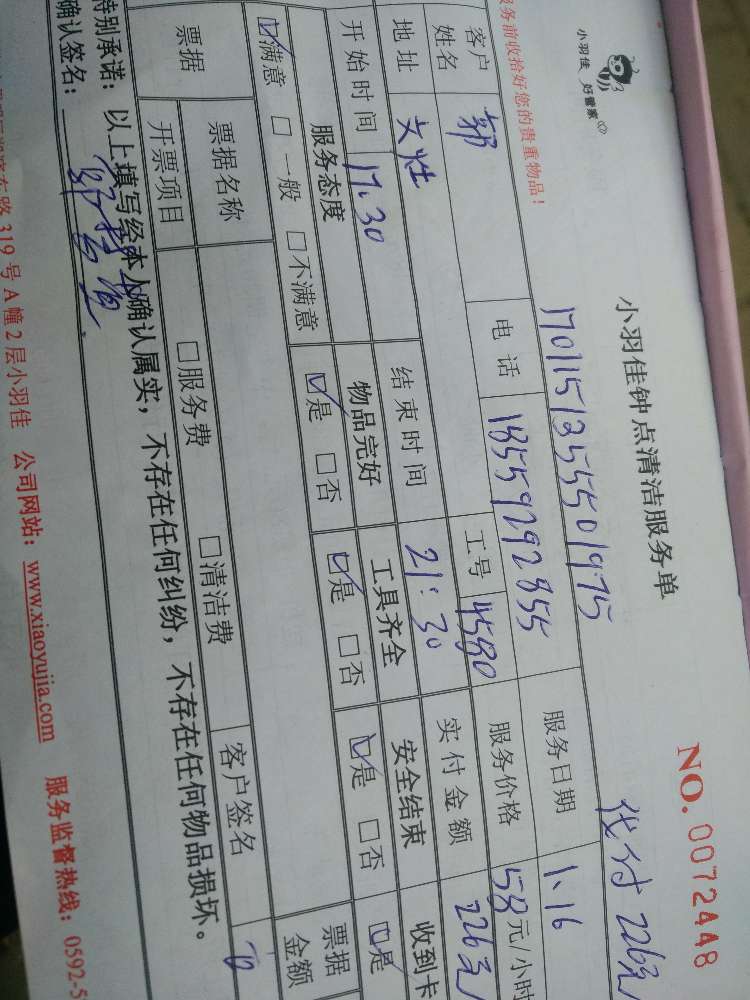 小羽佳 好管家
小羽佳钟点清洁服务单
NO. 0072448
务前收拾好您的贵重物品！
1701151355501975
代付 226元
客户姓名
郭
电话
18559292855
服务日期
1.16
地址
文性
工号
4580
服务价格
58元/小时
开始时间
17.30
结束时间
21:30
实付金额
226元
收到卡
服务态度
物品完好
工具齐全
安全结束
☑满意 □一般 □不满意
☑是 □否
☑是 □否
☑是 □否
☑是
票据
票据名称
票据金额
开票项目
□服务费
□清洁费
客户签名
特别承诺：以上填写经本人确认属实，不存在任何纠纷，不存在任何物品损坏。
确认签名：
路319号A幢2层小羽佳 公司网站：www.xiaoyujia.com 服务监督热线：0592-5